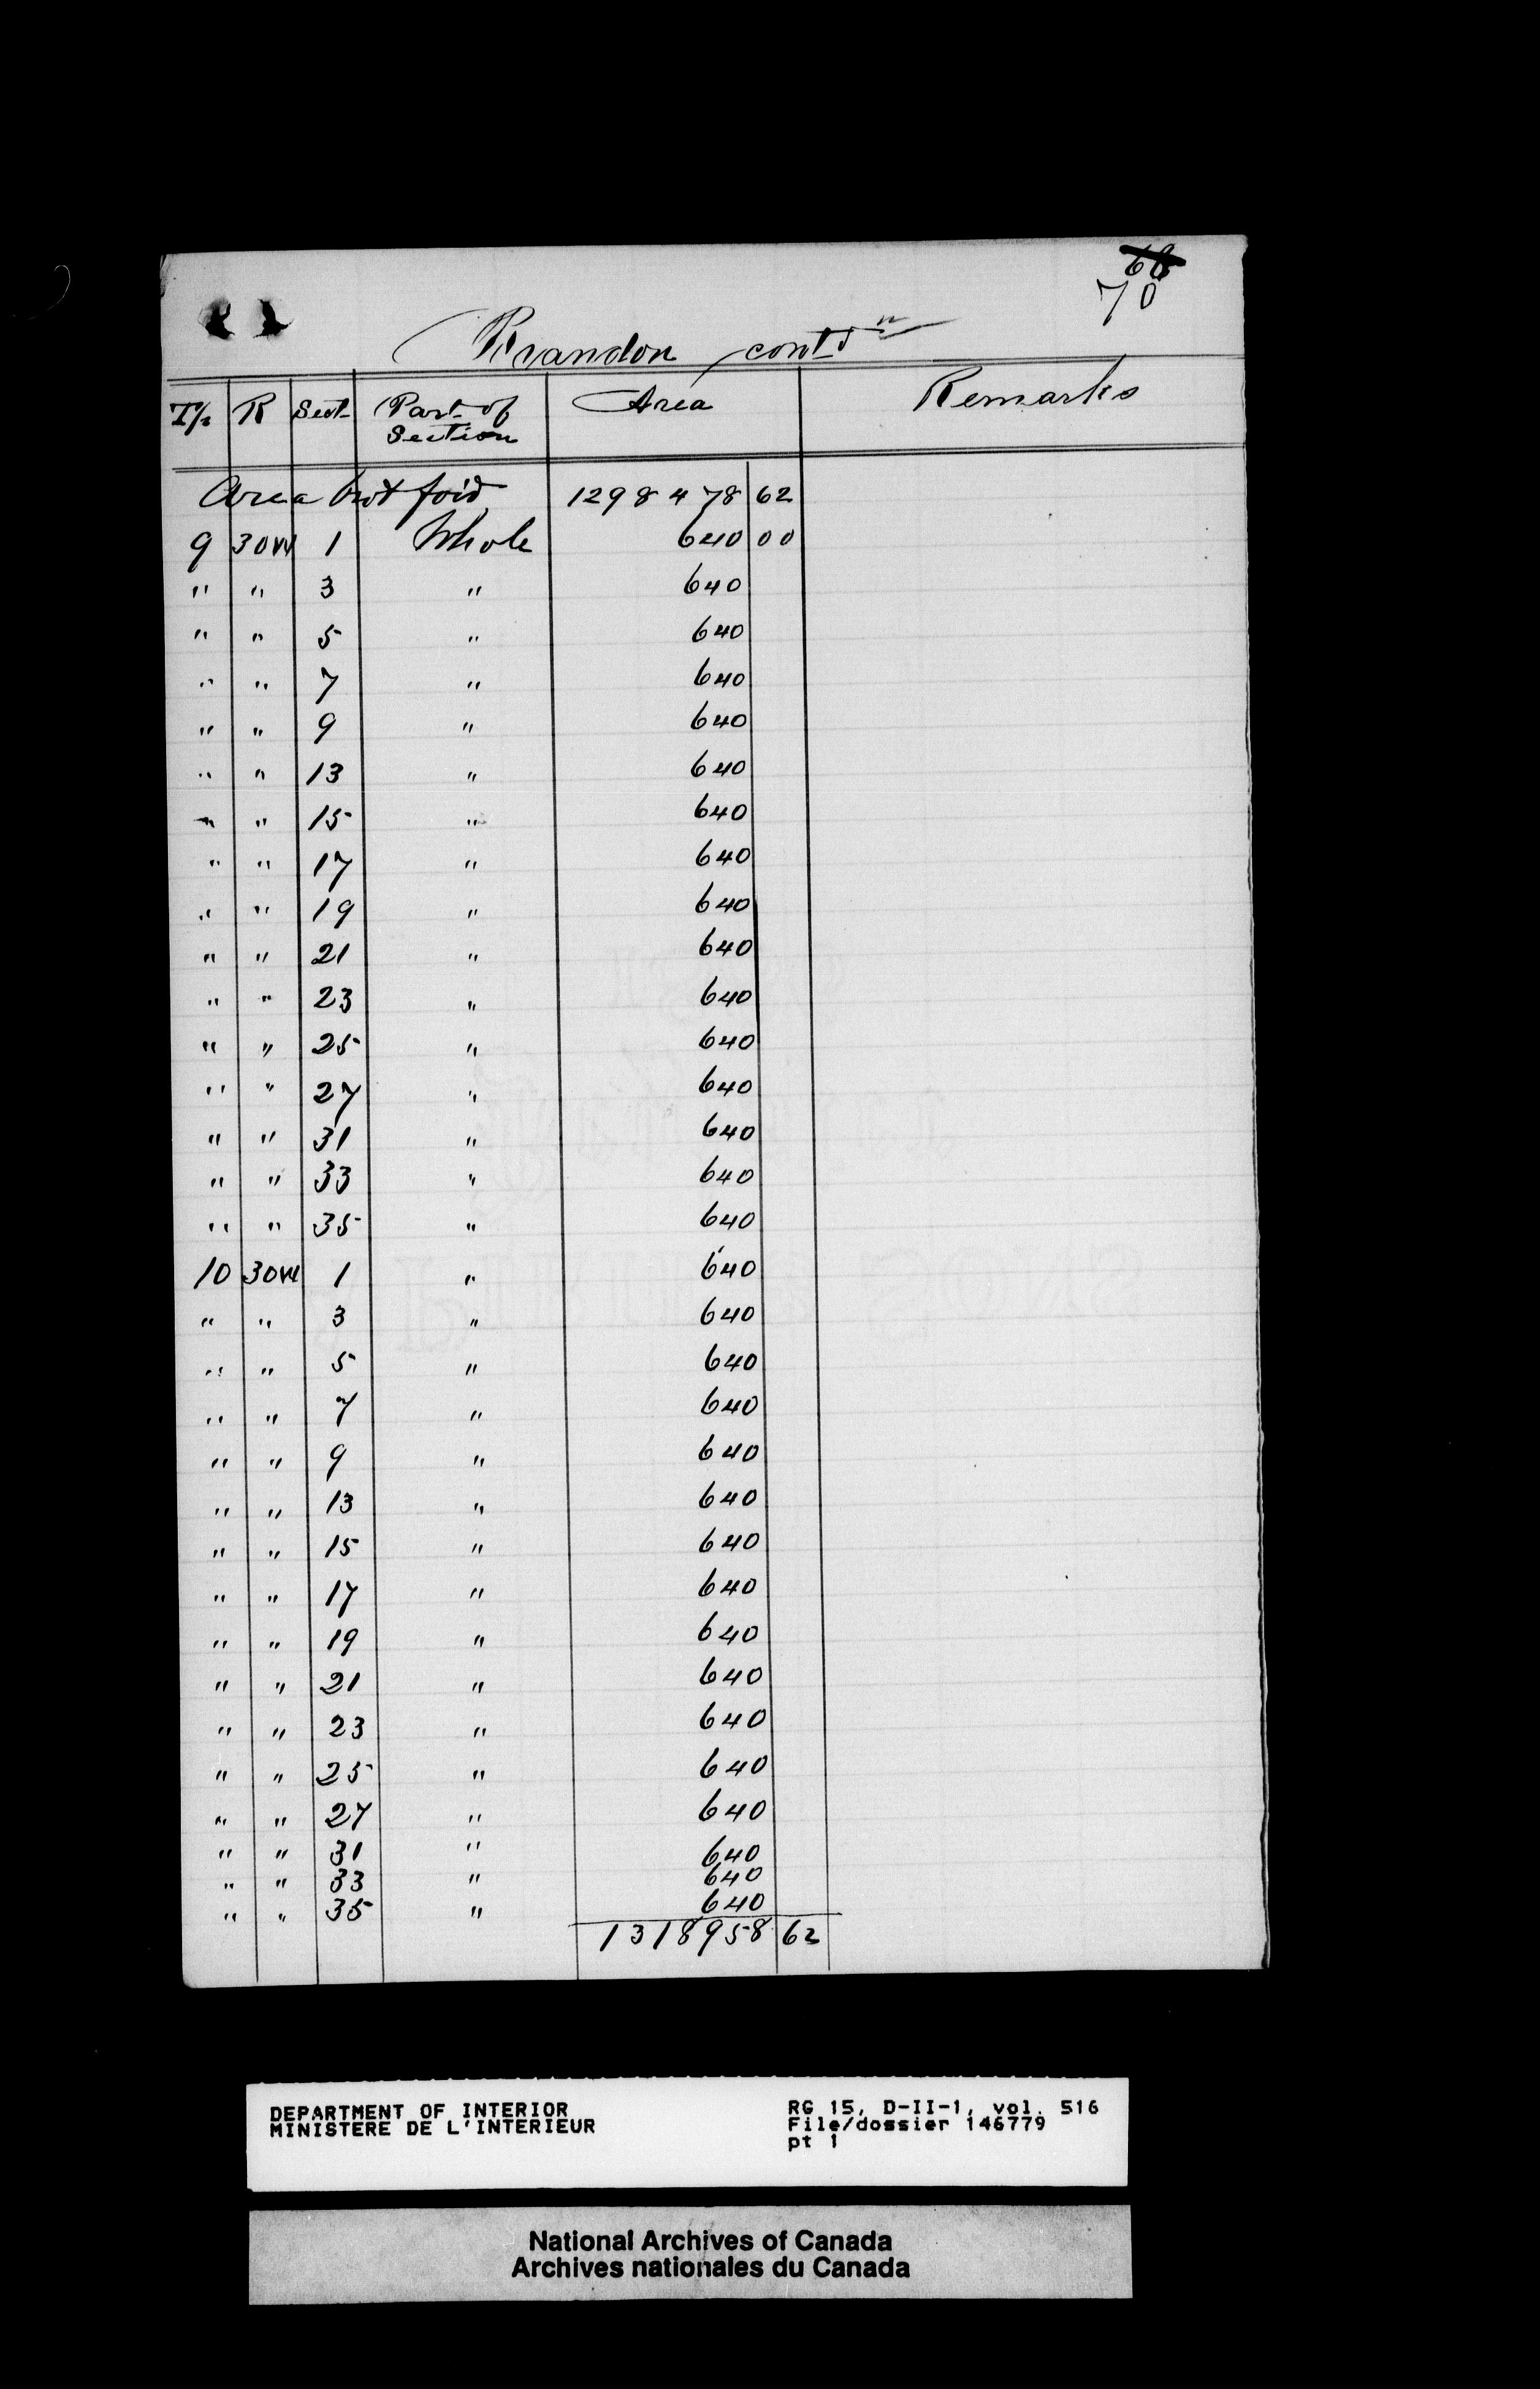 68
70
Brandon contd
Tp R Sect. Part of Section Area Remarks
Area brot ford 1298478 62
9 30W 1 Whole 640 00
" " 3 " 640
" " 5 " 640
" " 7 " 640
" " 9 " 640
" " 13 " 640
" " 15 " 640
" " 17 " 640
" " 19 " 640
" " 21 " 640
" " 23 " 640
" " 25 " 640
" " 27 " 640
" " 31 " 640
" " 33 " 640
" " 35 " 640
10 30W 1 " 640
" " 3 " 640
" " 5 " 640
" " 7 " 640
" " 9 " 640
" " 13 " 640
" " 15 " 640
" " 17 " 640
" " 19 " 640
" " 21 " 640
" " 23 " 640
" " 25 " 640
" " 27 " 640
" " 31 " 640
" " 33 " 640
" " 35 " 640
1318958 62
DEPARTMENT OF INTERIOR
MINISTERE DE L'INTERIEUR
RG 15, D-II-1, vol. 516
File/dossier 146779
pt 1
National Archives of Canada
Archives nationales du Canada